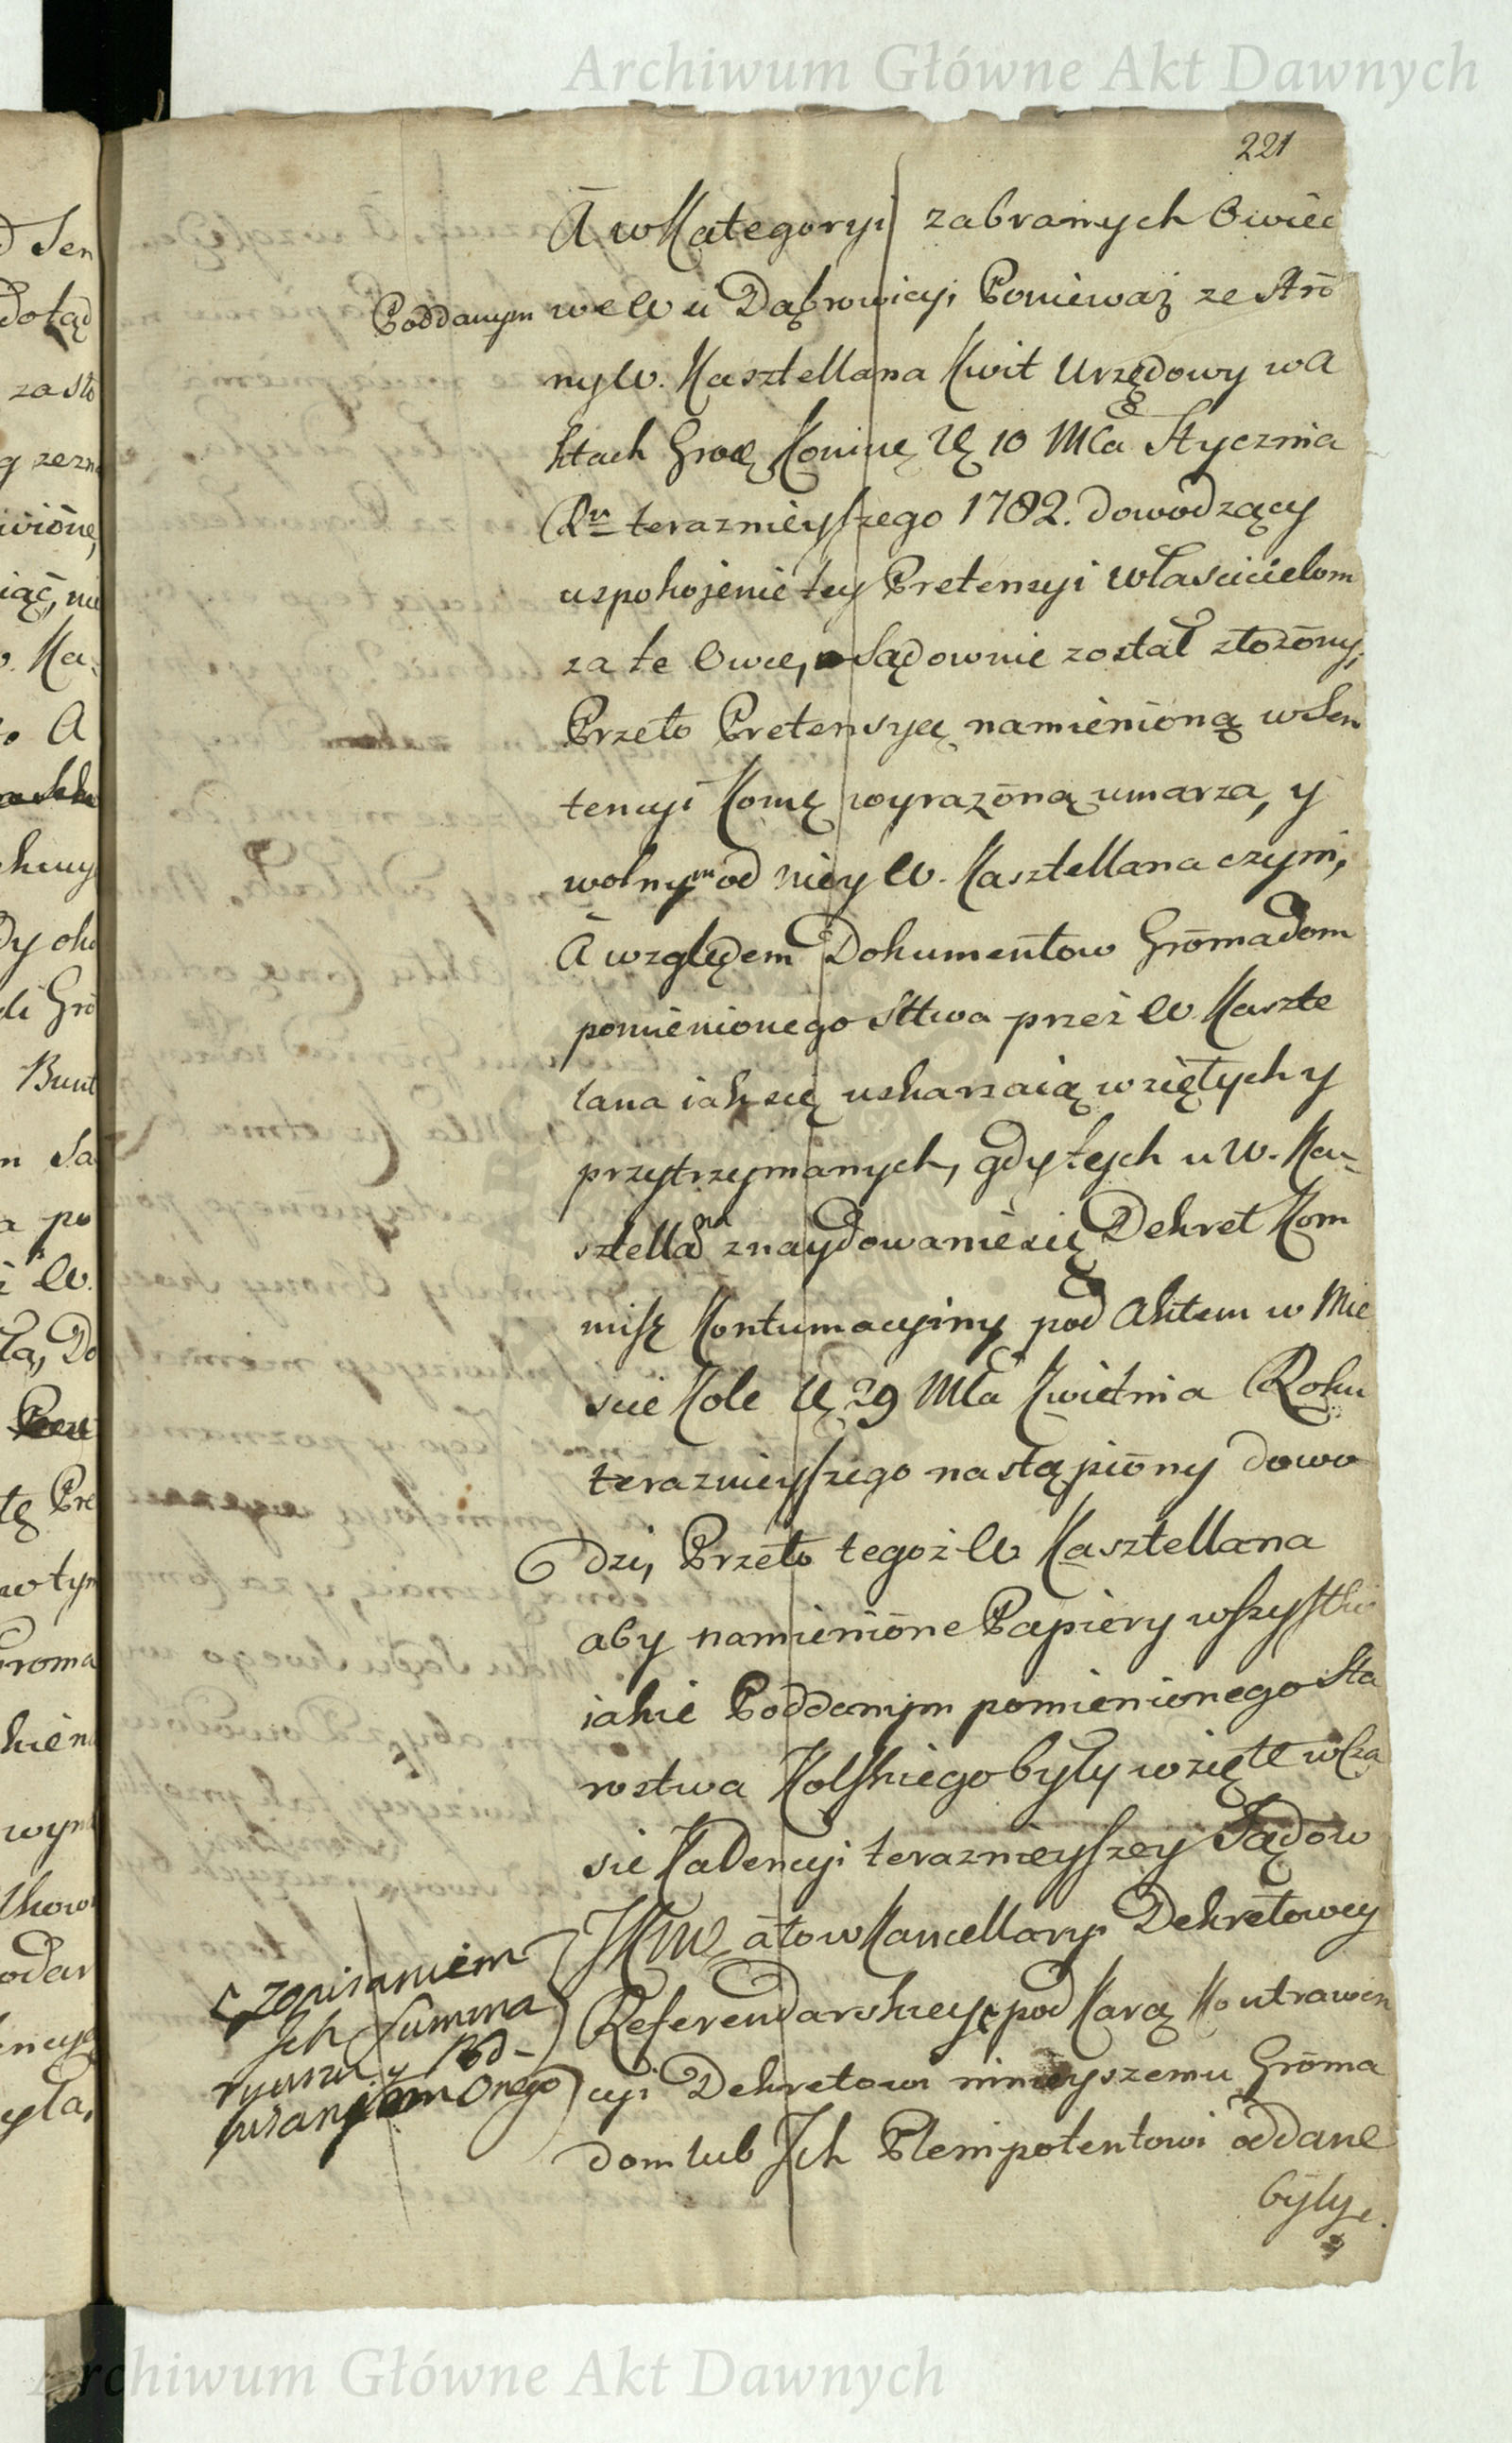 Archiwum Główne Akt Dawnych
221
A w Kategoryi zabranych Owiec
Poddanym we W u Dąbrowicy, Ponieważ ze stro
ny W. Kasztellana Kwit Urzędowy w A
ktach Grod Konin 10 Mca Stycznia
Ru teraznieyszego 1782. dowodzący
uspokojenie tey Pretensyi właścicielom
za te Owce, Sądownie został złożony,
Przeto Pretensyą namienioną w Sen
tencyi Kom wyrażoną umarza, y
wolnym od niey W. Kasztellana czyni,
A względem Dokumentow Gromadom
pomienionego Sttwa przez W. Kaszte
lana iak się uskarzaią wziętych y
przytrzymanych, gdy tych u W. Ka-
sztellana znaydowanie się Dekret Kom
miss Kontumacyiny pod Aktem w Mie
scie Kole 29 Mca Kwietnia Roku
teraznieyszego nastąpiony dowo
dzi, Przeto tegoż W Kasztellana
aby namienione Papiery wszystkie
iakie Poddanym pomienionego Sta
rostwa Kolskiego były wzięte w Cza
sie Kadencyi teraznieyszey Sądow
JKM a to w Kancellaryi Dekretowey
Referendarskiey pod Karą Kontrawen
cyi Dekretowi ninieyszemu Groma
dom lub Ich Plenipotentowi oddane
były.
z zopisaniem
Ich Summa
ryuszu y Pod-
pisaniem Onego
Archiwum Główne Akt Dawnych